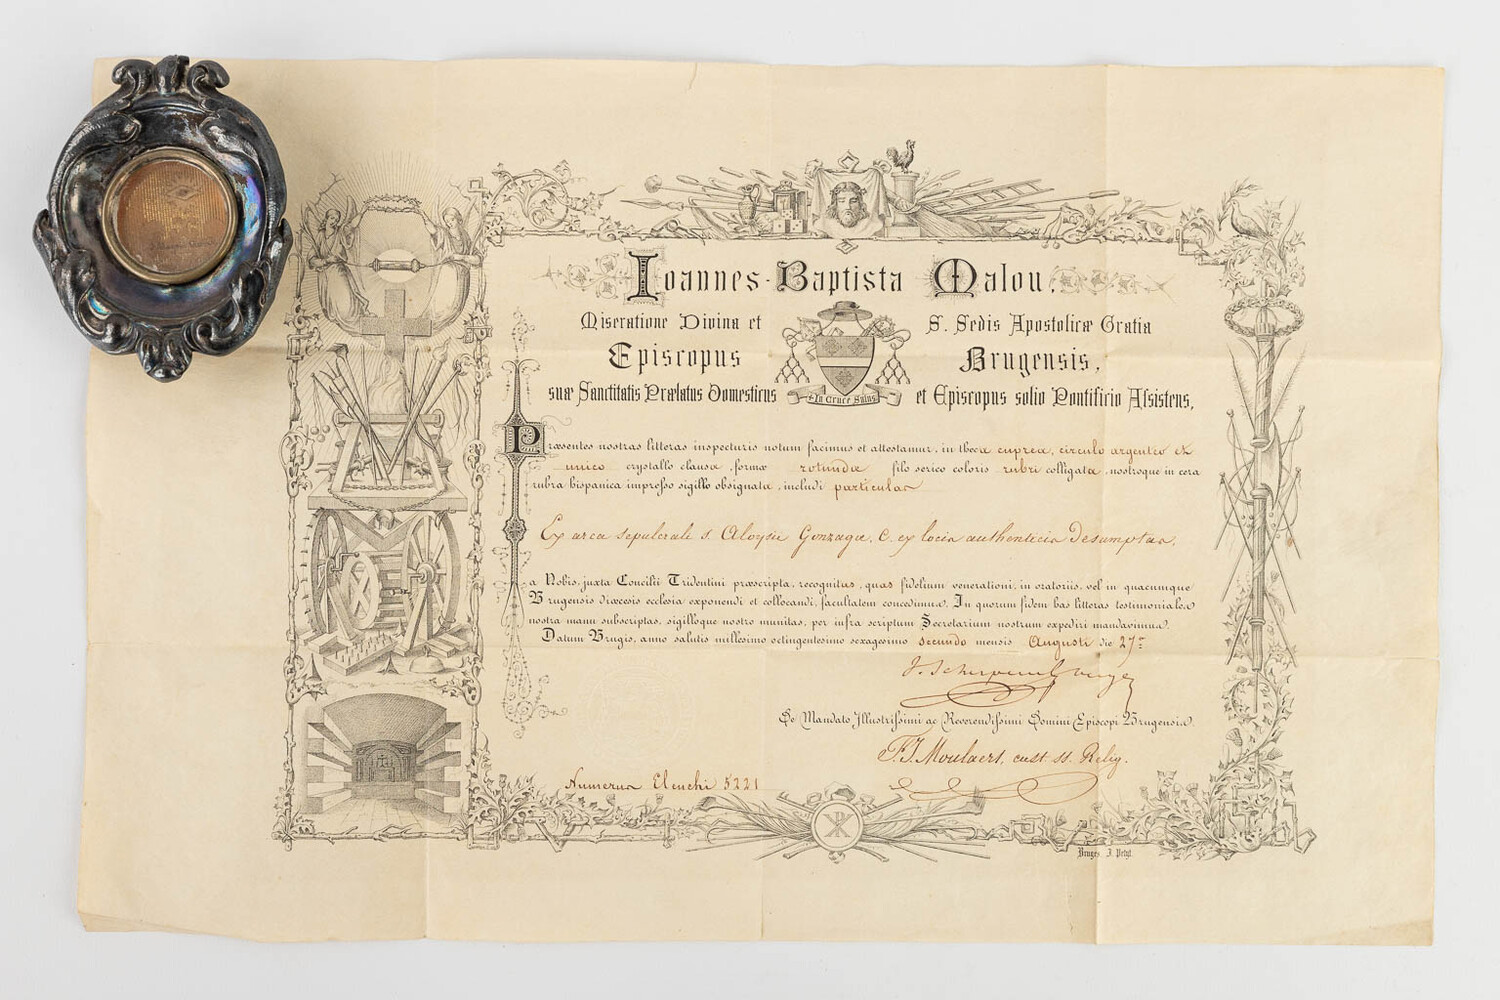 Ioannes-Baptista Malou,
Miseratione Divina et S. Sedis Apostolicæ Gratia
Episcopus Brugensis,
suæ Sanctitatis Prælatus Domesticus et Episcopus solio Pontificio Assistens,
In Cruce Salus
Præsentes nostras litteras inspecturis notum facimus et attestamur, in theca cuprea, circulo argenteo et
unico crystallo clausa, formæ rotundæ filo serico coloris rubri colligata, nostroque in cera
rubra hispanica impresso sigillo obsignata, inclusi particulas
Ex arca sepulcrali s. Aloysii Gonzagæ, C. ex locis authenticis desumptas,
a Nobis, juxta Concilii Tridentini præscripta, recognitas, quas fidelium venerationi, in oratoriis, vel in quacumque
Brugensis diœcesis ecclesia exponendi et collocandi, facultatem concedimus. In quorum fidem has litteras testimoniales
nostra manu subscriptas, sigilloque nostro munitas, per infra scriptum Secretarium nostrum expediri mandavimus.
Datum Brugis, anno salutis millesimo octingentesimo sexagesimo secundo mensis Augusti die 27ª
De Mandato Illustrissimi ac Reverendissimi Domini Episcopi Brugensis.
F. J. Moulaert, cust. ss. Reliq.
Numerus Elenchi 5221
Bruges. J. Petyt